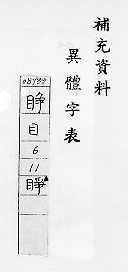 補充資料
異體字表
睜
目
6
11
睜